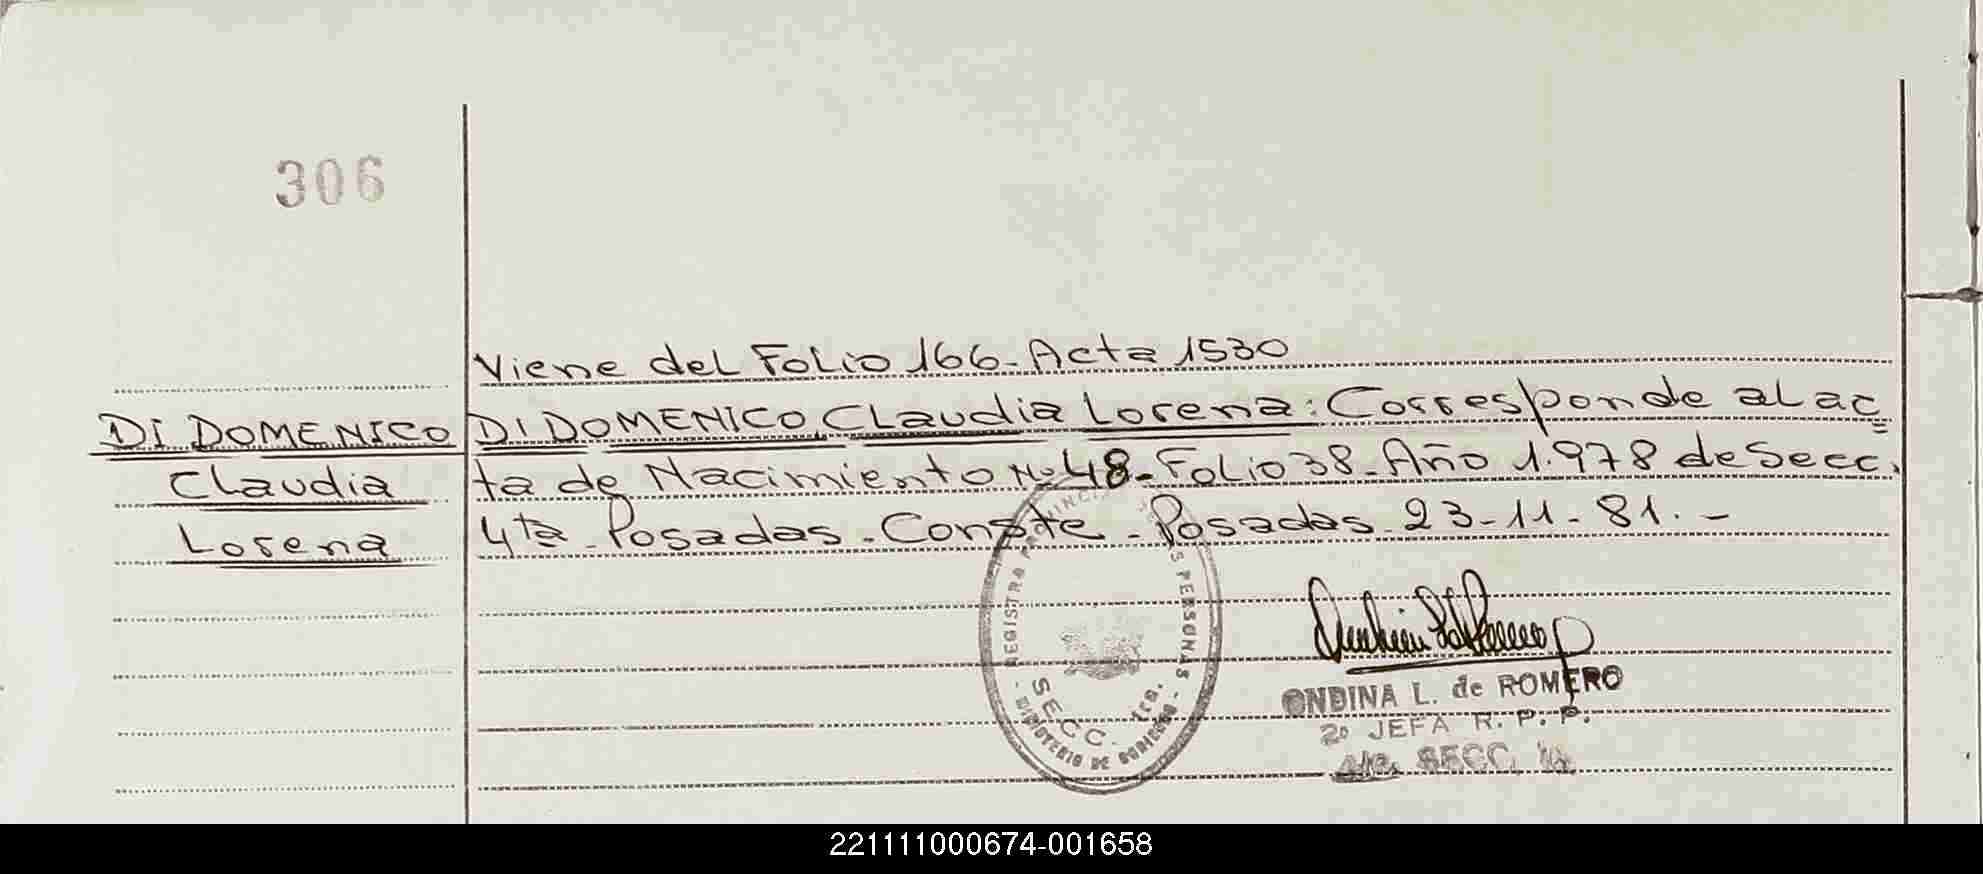 306
Viene del Folio 166-Acta 1530
DI DOMENICO
Claudia
Lorena
DI DOMENICO, Claudia Lorena: Corresponde al ac
ta de Nacimiento Nº 48-Folio 38-Año 1.978 de Secc.
4ta - Posadas - Conste - Posadas - 23-11-81.-
REGISTRO PROVINCIAL DE LAS PERSONAS
SECC. 1ra.
MINISTERIO DE GOBIERNO
ONDINA L. de ROMERO
2º JEFA R. P. P.
SECC.
221111000674-001658